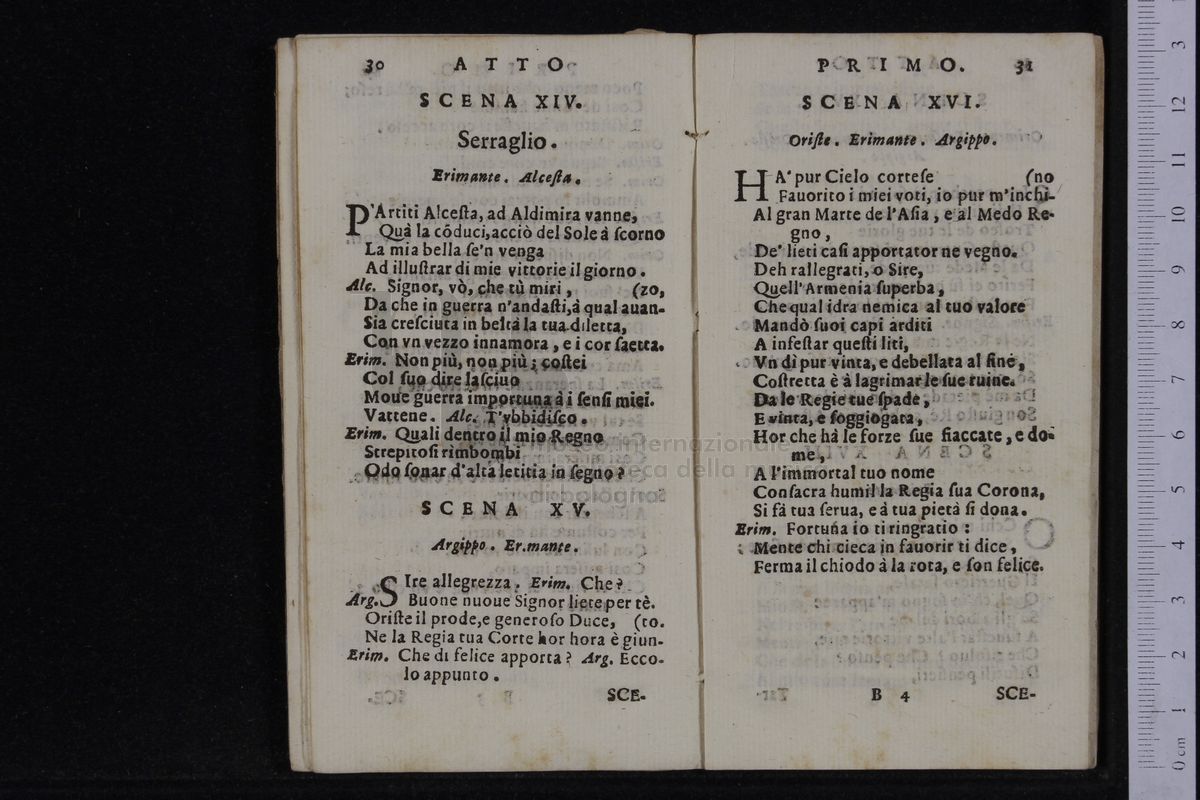 30 ATTO
SCENA XIV.
Serraglio.
Erimante. Alcesta.
P'Artiti Alcesta, ad Aldimira vanne,
Quà la cõduci, acciò del Sole à scorno
La mia bella se'n venga
Ad illustrar di mie vittorie il giorno.
Alc. Signor, vò, che tù miri, (zo,
Da che in guerra n'andasti, à qual auan-
Sia cresciuta in beltà la tua diletta,
Con vn vezzo innamora, e i cor saetta.
Erim. Non più, non più; costei
Col suo dire lasciuo
Moue guerra importuna à i sensi miei.
Vattene. Alc. T'vbbidisco.
Erim. Quali dentro il mio Regno
Strepitosi rimbombi
Odo sonar d'alta letitia in segno?
SCENA XV.
Argippo. Er.mante.
SIre allegrezza. Erim. Che?
Arg. Buone nuoue Signor liete per tè.
Oriste il prode, e generoso Duce, (to.
Ne la Regia tua Corte hor hora è giun-
Erim. Che di felice apporta? Arg. Ecco-
lo appunto.
SCE-
PRIMO. 31
SCENA XVI.
Oriste. Erimante. Argippo.
HA' pur Cielo cortese (no
Fauorito i miei voti, io pur m'inchi-
Al gran Marte de l'Asia, e al Medo Re-
gno,
De' lieti casi apportator ne vegno.
Deh rallegrati, o Sire,
Quell'Armenia superba,
Che qual idra nemica al tuo valore
Mandò suoi capi arditi
A infestar questi liti,
Vn dì pur vinta, e debellata al fine,
Costretta è à lagrimar le sue ruine.
Da le Regie tue spade,
E vinta, e soggiogata,
Hor che hà le forze sue fiaccate, e do-
me,
A l'immortal tuo nome
Consacra humil la Regia sua Corona,
Si fà tua serua, e à tua pietà si dona.
Erim. Fortuna io ti ringratio:
Mente chi cieca in fauorir ti dice,
Ferma il chiodo à la rota, e son felice.
B 4 SCE-